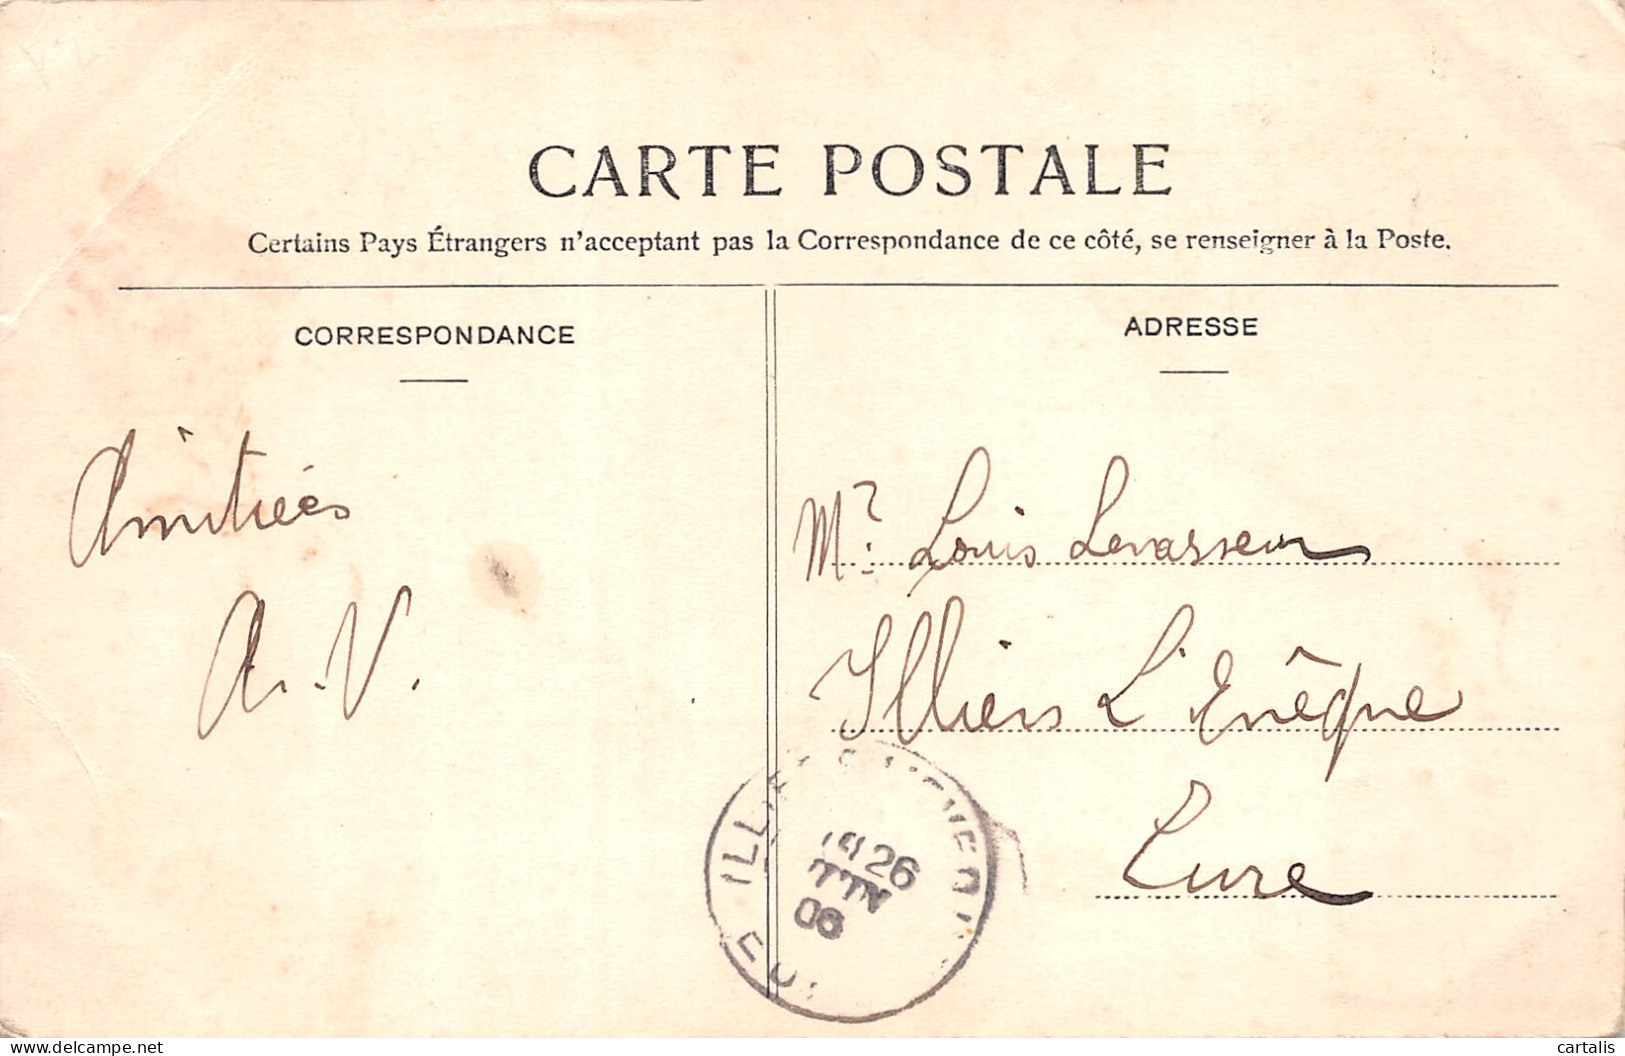 CARTE POSTALE
Certains Pays Étrangers n'acceptant pas la Correspondance de ce côté, se renseigner à la Poste.
CORRESPONDANCE
ADRESSE
Amitiés
A. V.
Mr. Louis Levasseur
Illiers L'Evêque
Eure
26
06
www.delcampe.net
cartalis